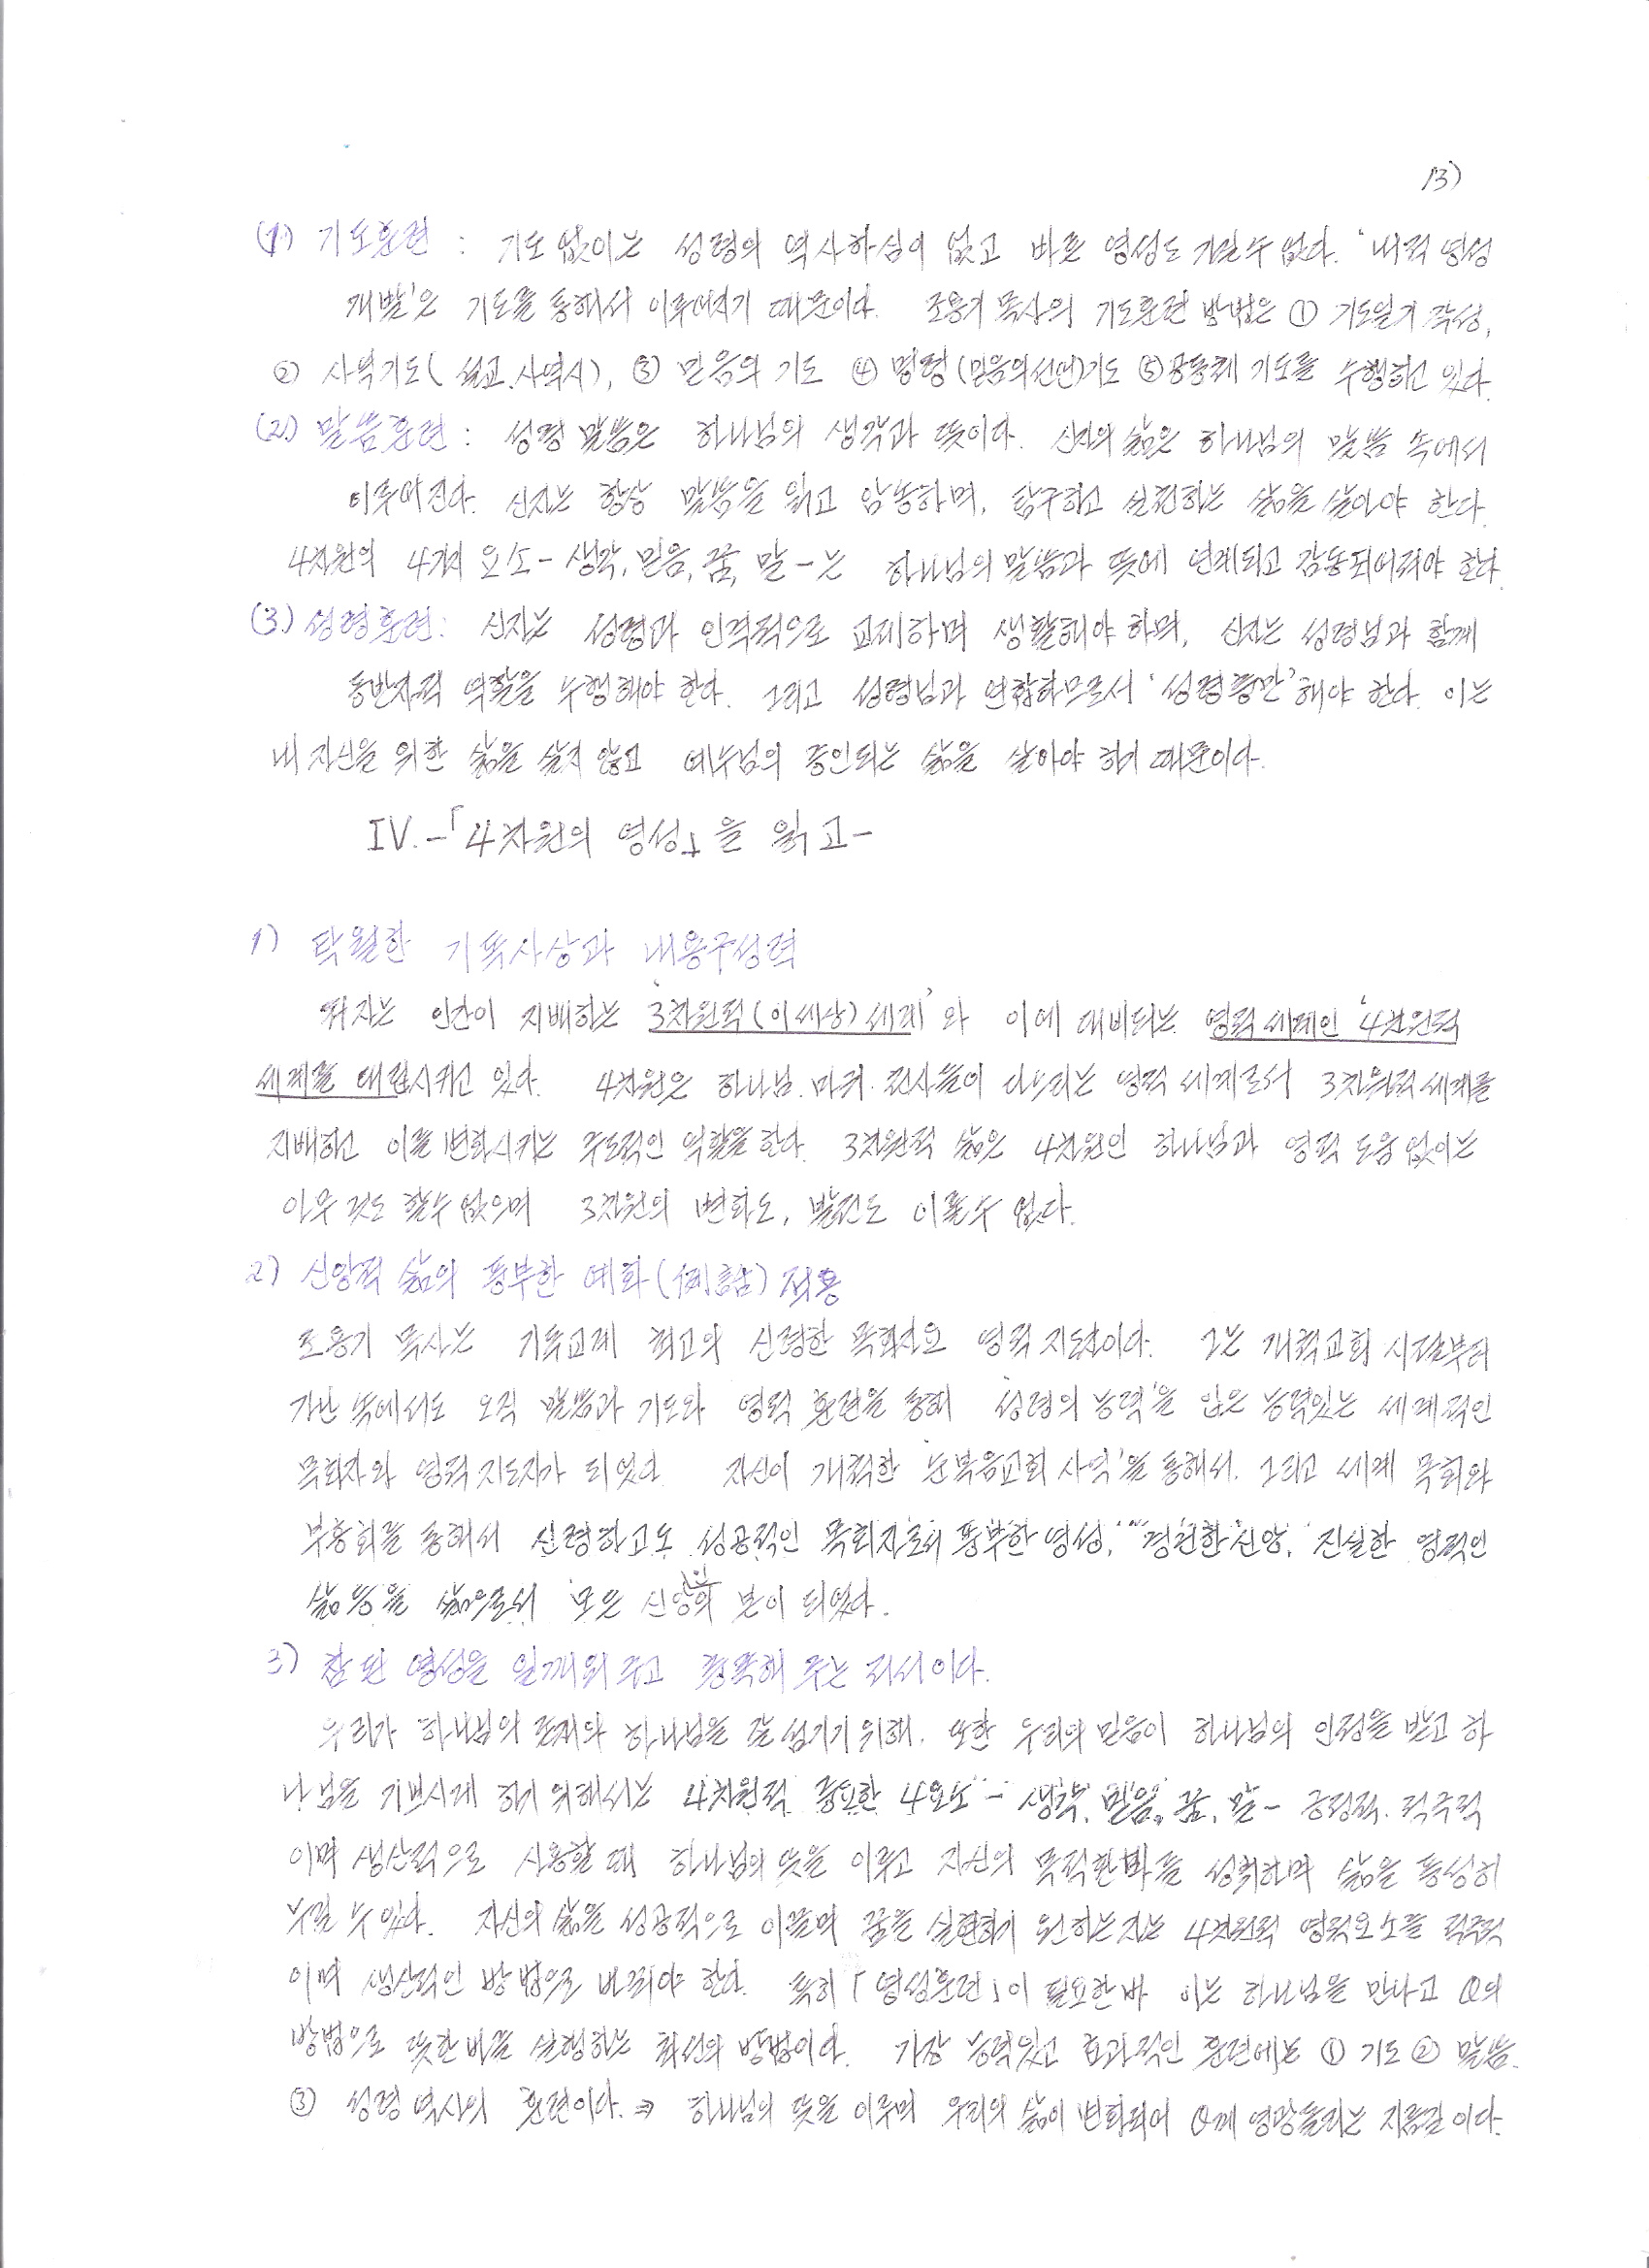 13)
(1) 기도훈련 : 기도 없이는 성령의 역사하심이 없고 바른 영성도 가질수 없다. '내적 영성
개발'은 기도를 통해서 이루어지기 때문이다. 조용기 목사의 기도훈련 방법은 ① 기도일기 작성,
② 사역기도( 설교.사역시), ③ 믿음의 기도 ④ 명령(믿음의선언)기도 ⑤공동체 기도를 수행하고 있다.
(2) 말씀훈련 : 성경 말씀은 하나님의 생각과 뜻이다. 신자의 삶은 하나님의 말씀 속에서
이루어진다. 신자는 항상 말씀을 읽고 암송하며, 탐구하고 실천하는 삶을 살아야 한다.
4차원의 4가지 요소-생각,믿음,꿈,말-는 하나님의 말씀과 뜻에 연계되고 감동되어져야 한다.
(3.) 성령훈련: 신자는 성령과 인격적으로 교제하며 생활해야 하며, 신자는 성령님과 함께
동반자적 역할을 수행해야 한다. 그리고 성령님과 연합함으로서 '성령충만'해야 한다. 이는
내 자신을 위한 삶을 살지 않고 예수님의 증인되는 삶을 살아야 하기 때문이다.
IV.-「4차원의 영성」을 읽고-
1) 탁월한 기독사상과 내용구성력
저자는 인간이 지배하는 '3차원적(이세상)세계'와 이에 대비되는 영적세계인 '4차원적
세계를 대립시키고 있다. 4차원은 하나님.마귀.천사들이 다스리는 영적 세계로서 3차원적세계를
지배하고 이를 변화시키는 주도적인 역할을 한다. 3차원적 삶은 4차원인 하나님과 영적 도움 없이는
아무 것도 할수 없으며 3차원의 변화도, 발전도 이룰수 없다.
2) 신앙적 삶의 풍부한 예화(例話) 적용
조용기 목사는 기독교계 최고의 신령한 목회자요 영적 지도자이다. 그는 개척교회 시절부터
가난 속에서도 오직 말씀과 기도와 영적 훈련을 통해 '성령의 능력'을 입은 능력있는 세계적인
목회자와 영적지도자가 되었다. 자신이 개척한 '순복음교회 사역'을 통해서. 그리고 세계 목회와
부흥회를 통해서 신령하고도 성공적인 목회자로서 풍부한 영성, 경건한 신앙, 진실한 영적인
삶 등을 삶으로서 모든 신앙인의 본이 되었다.
3) 참된 영성을 일깨워 주고 증폭해 주는 저서이다.
우리가 하나님의 존재와 하나님을 잘 섬기기 위해. 또한 우리의 믿음이 하나님의 인정을 받고 하
나님을 기쁘시게 하기 위해서는 4차원적 중요한 4요소 - 생각, 믿음, 꿈, 말- 긍정적. 적극적
이며 생산적으로 사용할 때 하나님의 뜻을 이루고 자신의 목적한바를 성취하며 삶을 풍성히
누릴 수 있다. 자신의 삶을 성공적으로 이끌며 꿈을 실현하기 원하는자는 4차원적 영적요소를 적극적
이며 생산적인 방법으로 바꿔야 한다. 특히 「영성훈련」이 필요한바 이는 하나님을 만나고 O의
방법으로 뜻한 바를 실행하는 최선의 방법이다. 가장 능력있고 효과적인 훈련에는 ① 기도 ② 말씀.
③ 성령 역사의 훈련이다.⇒ 하나님의 뜻을 이루며 우리의 삶이 변화되어 O께 영광돌리는 지름길이다.